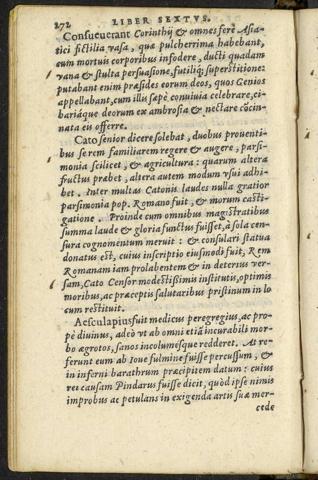 272 LIBER SEXTVS.
Consueuerant Corinthij & omnes ferè Asia-
tici fictilia vasa, qua pulcherrima habebant,
cum mortuis corporibus infodere, ducti quadam
vana & stulta persuasione, futiliq; superstitione:
putabant enim præsides eorum deos, quos Genios
appellabant, cum illis sæpè conuiuia celebrare, ci-
bariáque deorum ex ambrosia & nectare cōcin-
nata eis offerre.
Cato senior dicere solebat, duobus prouenti-
bus se rem familiarem regere & augere, parsi-
monia scilicet, & agricultura: quarum altera
fructus præbet, altera autem modum vsui adhi-
bet. Inter multas Catonis laudes nulla gratior
parsimonia pop. Romano fuit, & morum casti-
gatione. Proinde cum omnibus magistratibus
summa laude & gloria functus fuisset, à sola cen-
sura cognomentum meruit: & consulari statua
donatus est, cuius inscriptio eiusmodi fuit, Rem
Romanam iam prolabentem & in deterius ver-
sam, Cato Censor modestißimis institutis, optimis
moribus, ac præceptis salutaribus pristinum in lo
cum restituit.
Aesculapius fuit medicus peregregius, ac pro-
pè diuinus, adeò vt ab omni etiā incurabili mor-
bo ægrotos, sanos incolumesque redderet. At re-
ferunt eum ab Ioue fulmine fuisse percussum, &
in inferni barathrum præcipitem datum: cuius
rei causam Pindarus fuisse dicit, quòd ipse nimis
improbus ac petulans in exigenda artis suæ mer-
cede